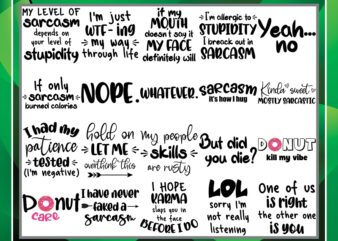 MY LEVEL OF
sarcasm
depends on
your level of
stupidity
I'm just
WTF-ing
my way
through life
if my
MOUTH
doesn't say it
MY FACE
definitely will
I'm allergic to
STUPIDITY
I breack out in
SARCASM
Yeah...
no
If only
sarcasm
burned calories
NOPE.
WHATEVER.
sarcasm
it's how I hug
Kinda sweet
MOSTLY SARCASTIC
I had my
patience
tested
(I'm negative)
hold on
LET ME
overthink this
my people
skills
are rusty
But did
you die?
DONUT
kill my vibe
Donut
CARE
I have never
faked a
sarcasm
I HOPE
KARMA
slaps you in
the face
BEFORE I DO
LOL
sorry I'm
not really
listening
One of us
is right
the other one
is you